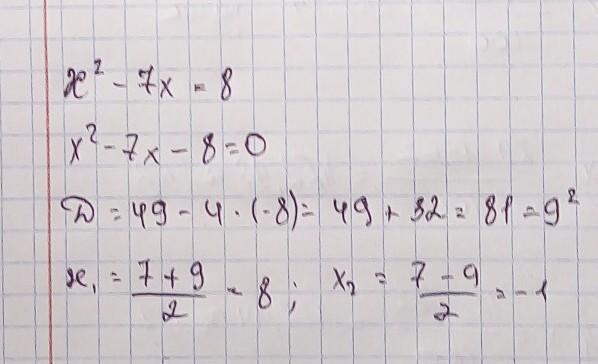 x² - 7x = 8
x² - 7x - 8 = 0
D = 49 - 4 · (-8) = 49 + 32 = 81 = 9²
x₁ = (7 + 9)/2 = 8 ; x₂ = (7 - 9)/2 = -1